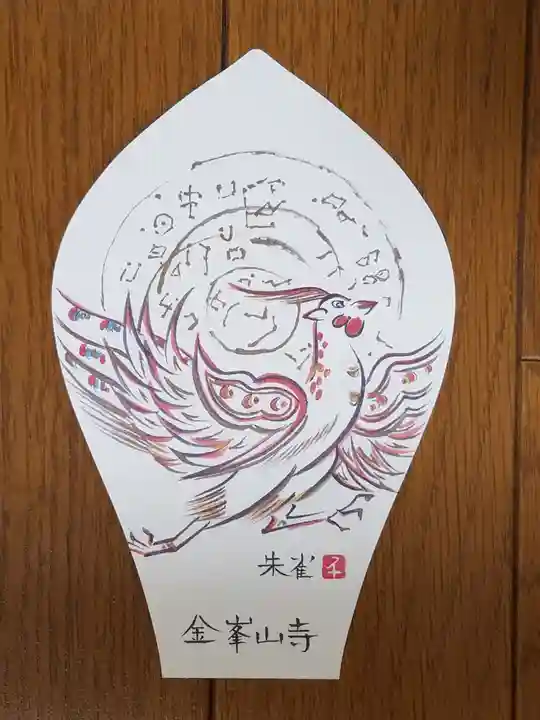 朱雀
金峯山寺